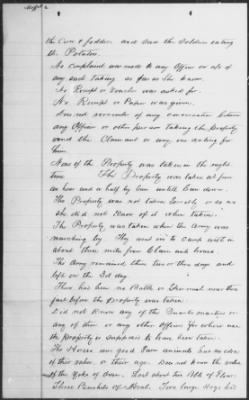 the Corn & fodder and saw the Soldiers eating
the Potatoes.
No complaint was made to any Officer or of
any such taking as far as She knew.
No Receipt or Voucher was asked for.
No Receipt or Paper was given.
Does not remember of any conversation between
any Officer or other person taking the property
and the Claimant or any one asking for
them
None of the Property was taken in the night
time The Property was taken from
an hour and a half by Sun untill Sun down.
The Property was not taken Secretly or as
she did not know of it when taken.
The Property was taken when the Army was
marching by They went in to Camp with in
about three mile from Claim and house.
The Army remained there two or three days and
left on the 3rd day.
There had been no Battle or Skirmish near this
just before the property was taken
Did not know any of the Quartermasters or
any of their or any other Officers for whose use
the property is supposed to have been taken.
The Horses are good Farm animals has no idea
of their value, or their age. Does not know the value
of the Yoke of Oxen. Lost about two Bbls of Flour.
Three Bushels of Meal. Two large Hogs his